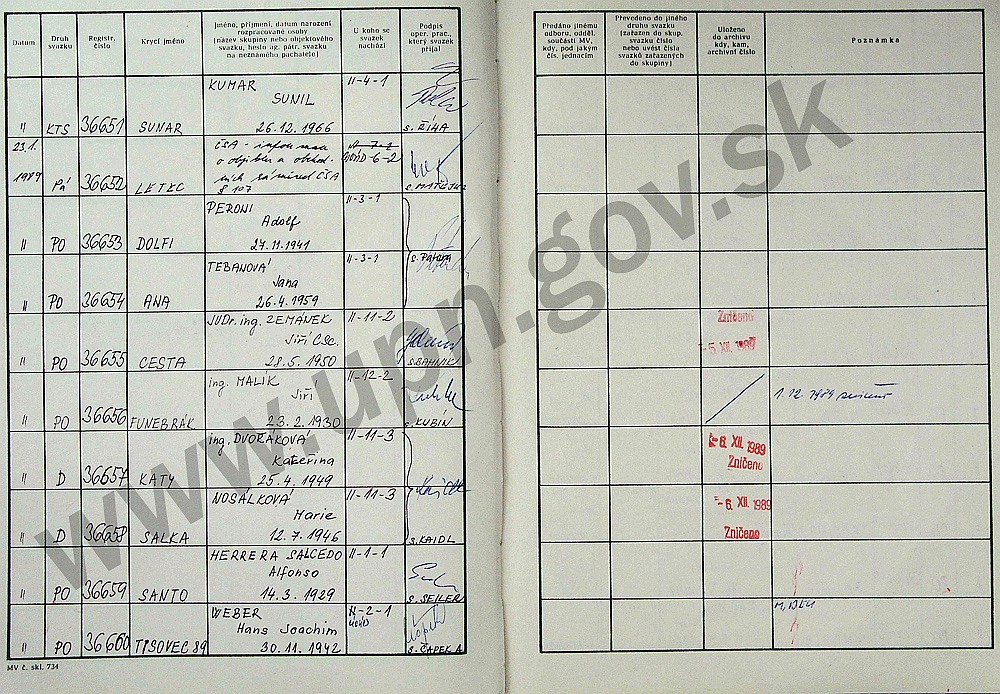 Datum
Druh svazku
Registr. číslo
Krycí jméno
Jméno, příjmení, datum narození
rozpracované osoby
(název skupiny nebo objektového
svazku, heslo ag. pátr. svazku
na neznámého pachatele)
U koho se
svazek
nachází
Podpis
oper. prac.,
který svazek
přijal
Předáno jinému
odboru, odděl.
součásti MV,
kdy, pod jakým
čís. jednacím
Převedeno do jiného
druhu svazku
(zařazen do skup.
svazku číslo
nebo uvést čísla
svazků zařazených
do skupiny)
Uloženo
do archivu
kdy, kam,
archivní číslo
Poznámka
KUMAR II-4-1
SUNIL
" KTS 36651 SUNAR 26.12.1966 s. ŘÍHA
23.1. ČSA -
1989 Pá 36652 LETEC ČSA
§ 107
PERONI II-3-1
Adolf
" PO 36653 DOLFI 27.11.1941
TEBANOVÁ II-3-1
Jana
" PO 36654 ANA 26.4.1959
JUDr. ing. ZEMÁNEK II-11-2 Zničeno
Jiří CSc.
" PO 36655 CESTA 28.5.1950 s. BAHNÍK -5. XII. 1989
ing. MALIK II-12-2
Jiří 1.12.1989
" PO 36656 FUNEBRÁK 23.2.1930 s. KUBÍN
ing. DVOŘÁKOVÁ II-11-3 -6. XII. 1989
Kateřina Zničeno
" D 36657 KATY 25.4.1949
NOSÁLKOVÁ II-11-3 -6. XII. 1989
Marie
" D 36658 SALKA 12.7.1946 s. KAIDL Zničeno
HERRERA SALCEDO II-1-1
Alfonso
" PO 36659 SANTO 14.3.1929 s. SEILER
WEBER II-2-1
Hans Joachim
" PO 36660 TISOVEC 89 30.11.1942 s. ČAPEK A
MV č. skl. 734
www.upn.gov.sk